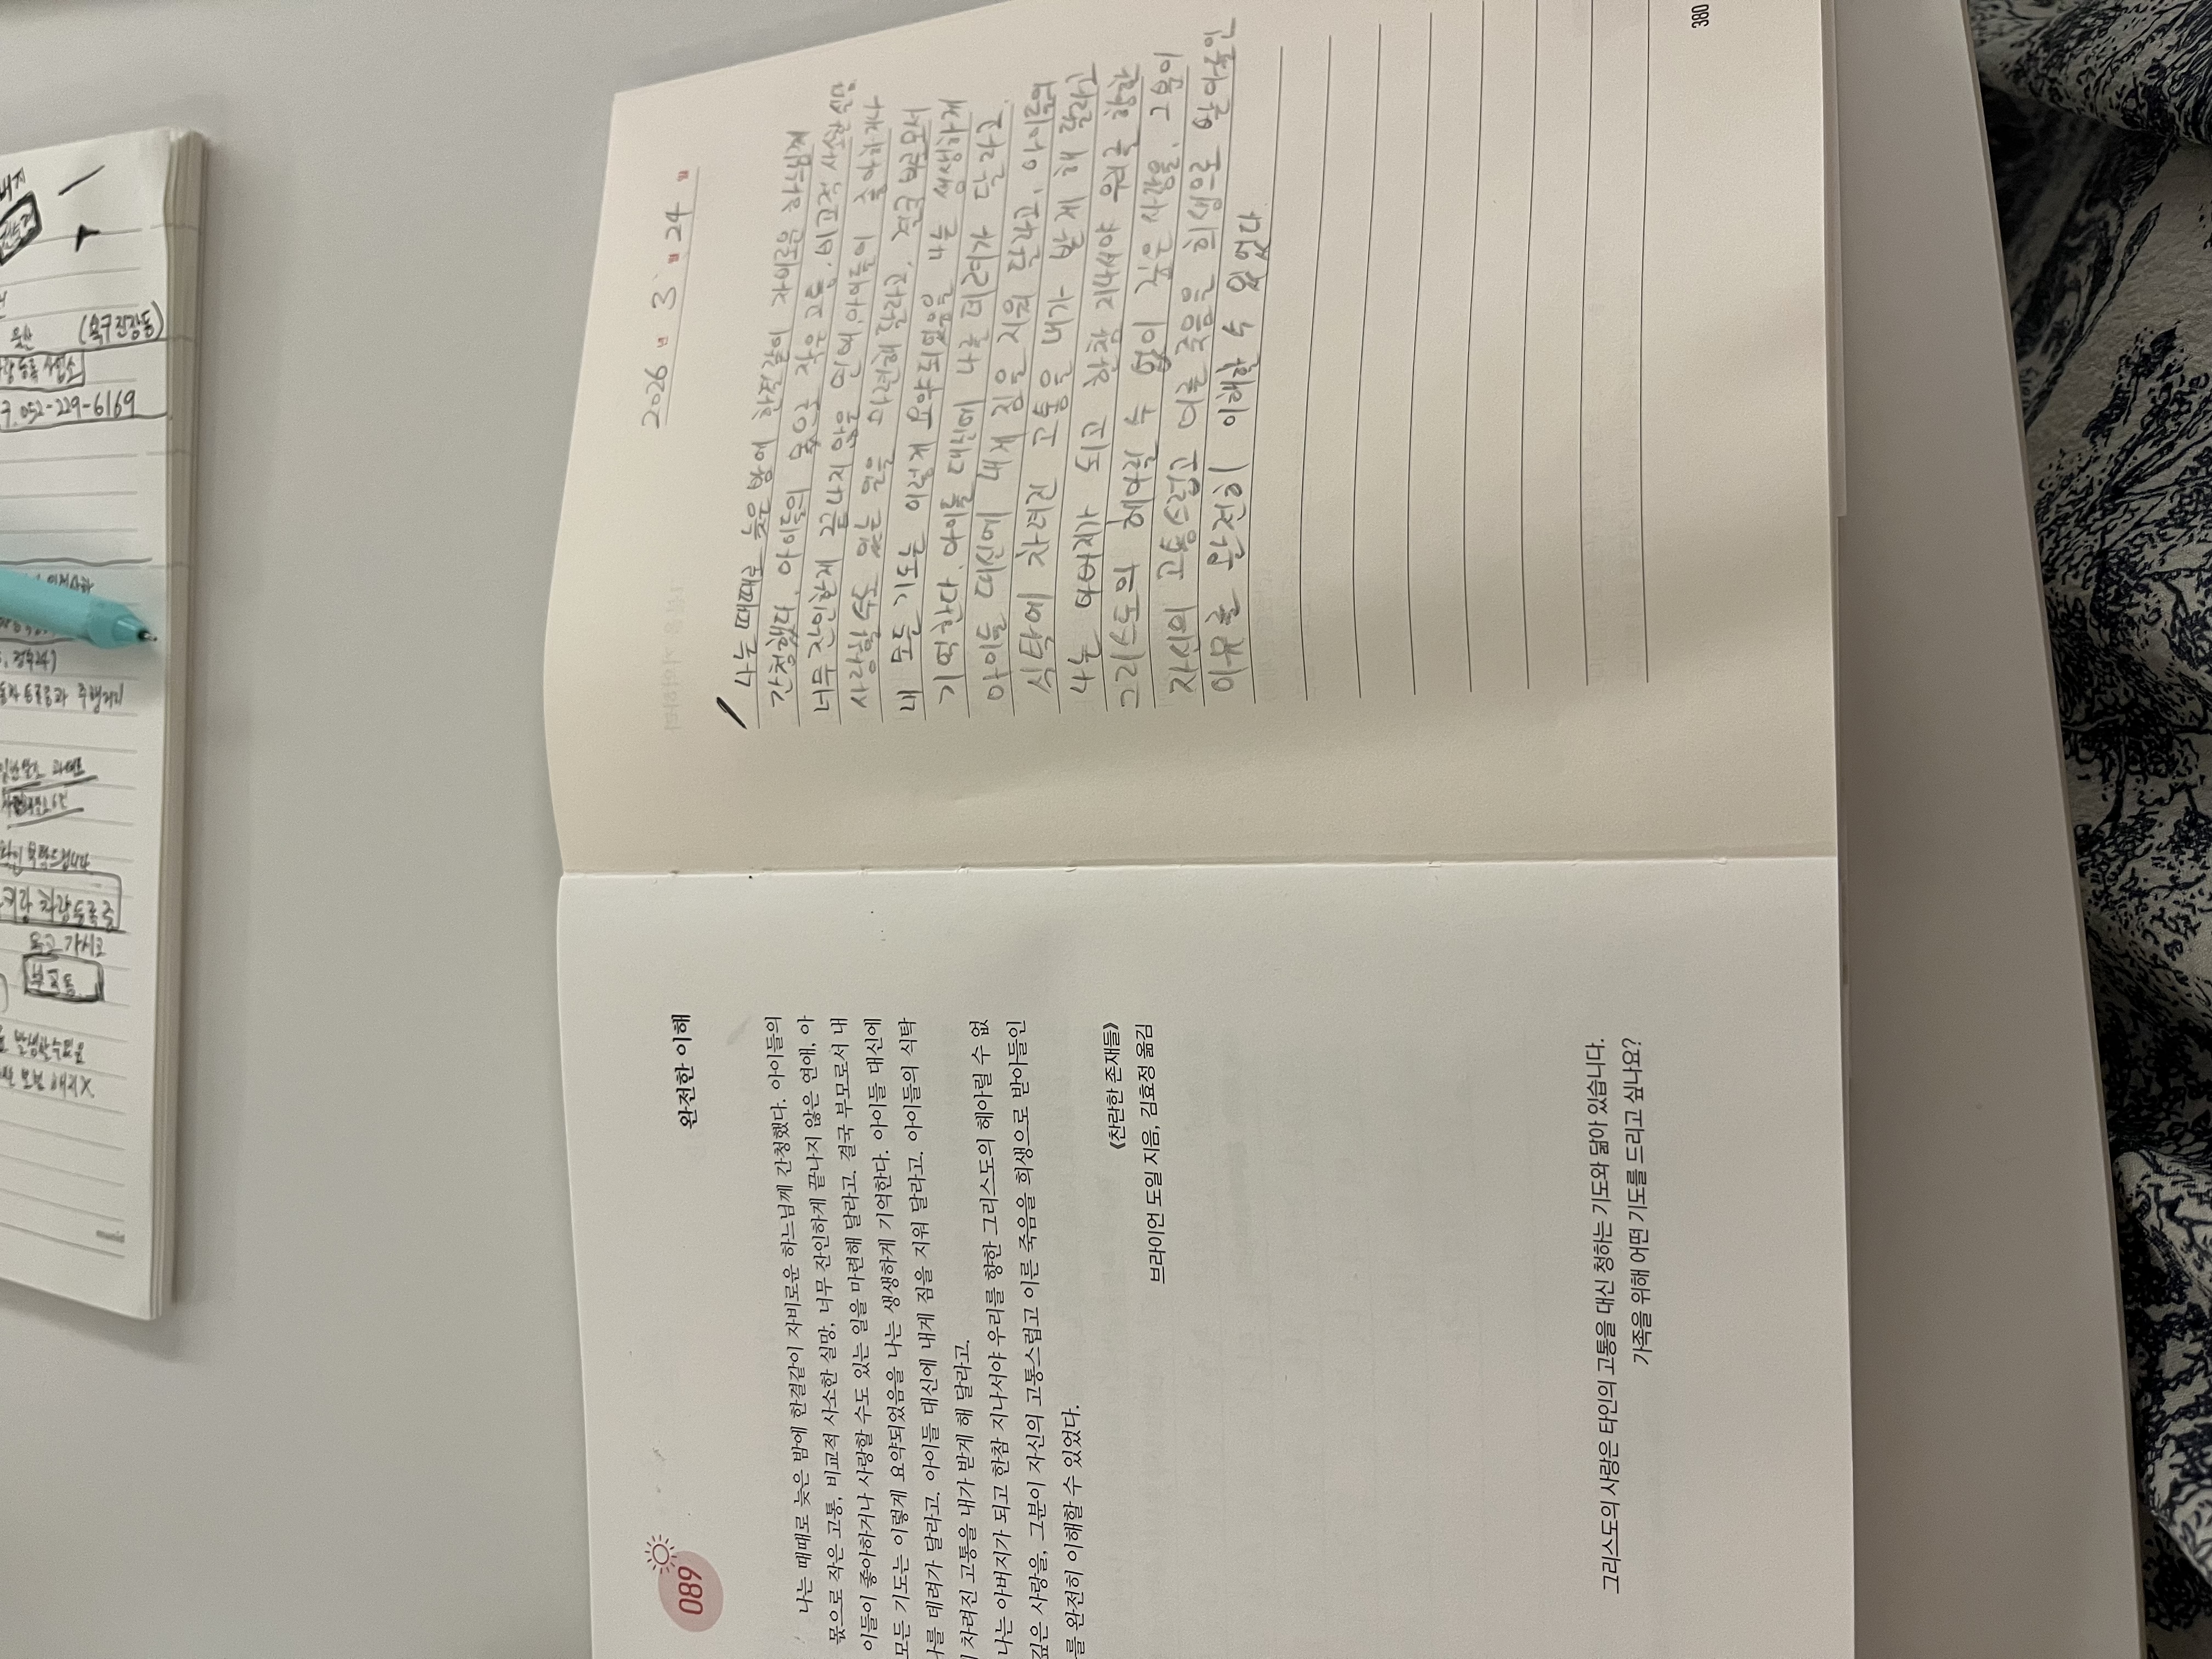 089
완전한 이해
나는 때때로 늦은 밤에 한결같이 자비로운 하느님께 간청했다. 아이들의
몫으로 작은 고통, 비교적 사소한 실망, 너무 잔인하게 끝나지 않은 연애, 아
이들이 좋아하거나 사랑할 수도 있는 일을 마련해 달라고. 결국 부모로서 내
모든 기도는 이렇게 요약되었음을 나는 생생하게 기억한다. 아이들 대신에
나를 데려가 달라고. 아이들 대신에 내게 짐을 지워 달라고. 아이들의 식탁
에 차려진 고통을 내가 받게 해 달라고.
나는 아버지가 되고 한참 지나서야 우리를 향한 그리스도의 헤아릴 수 없
깊은 사랑을, 그분이 자신의 고통스럽고 이른 죽음을 희생으로 받아들인
를 완전히 이해할 수 있었다.
《찬란한 존재들》
브라이언 도일 지음, 김효정 옮김
그리스도의 사랑은 타인의 고통을 대신 청하는 기도와 닮아 있습니다.
가족을 위해 어떤 기도를 드리고 싶나요?
2026 년 3 월 24 일
나는 때때로 늦은 밤에 한결같이 자비로운 하느님께
간청했다. 아이들의 몫으로 작은 고통, 비교적 사소한 실망,
너무 잔인하게 끝나지 않은 연애, 아이들이 좋아하거나
사랑할 수도 있는 일을 마련해 달라고. 결국 부모로서
내 모든 기도는 이렇게 요약되었음을 나는 생생하게
기억한다. 아이들 대신에 나를 데려가 달라고.
아이들 대신에 내게 짐을 지워 달라고. 아이들의
식탁에 차려진 고통을 내가 받게 해 달라고
나는 아버지가 되고 한참 지나서야 우리를 향한
그리스도의 헤아릴 수 없이 깊은 사랑을, 그분이
자신의 고통스럽고 이른 죽음을 희생으로 받아들인
이유를 완전히 이해할 수 있었다
380
울산
(옥구진장동)
등록 사업소
052-229-6169
주행거리
차량등록증